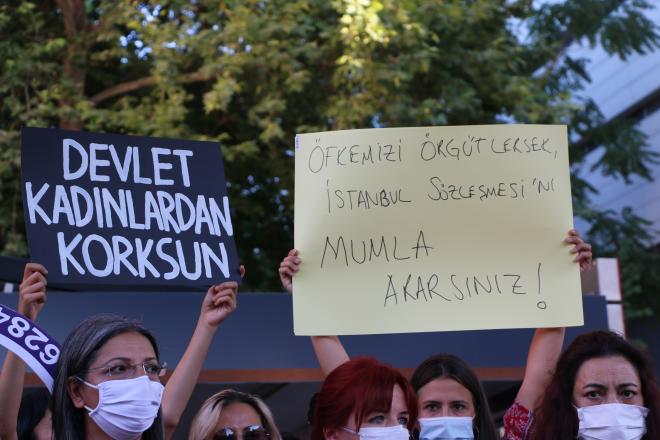 DEVLET
KADINLARDAN
KORKSUN
ÖFKEMİZİ ÖRGÜTLERSEK,
İSTANBUL SÖZLEŞMESİ'Nİ
MUMLA
ARARSINIZ!
6284